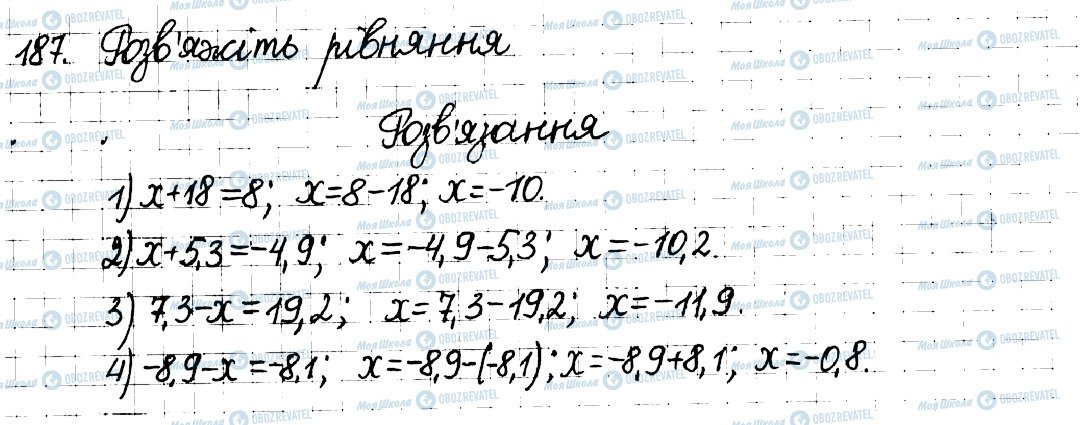 187. Розв'яжіть рівняння
Розв'язання
1) x+18=8; x=8-18; x=-10.
2) x+5,3=-4,9; x=-4,9-5,3; x=-10,2.
3) 7,3-x=19,2; x=7,3-19,2; x=-11,9.
4) -8,9-x=-8,1; x=-8,9-(-8,1); x=-8,9+8,1; x=-0,8.